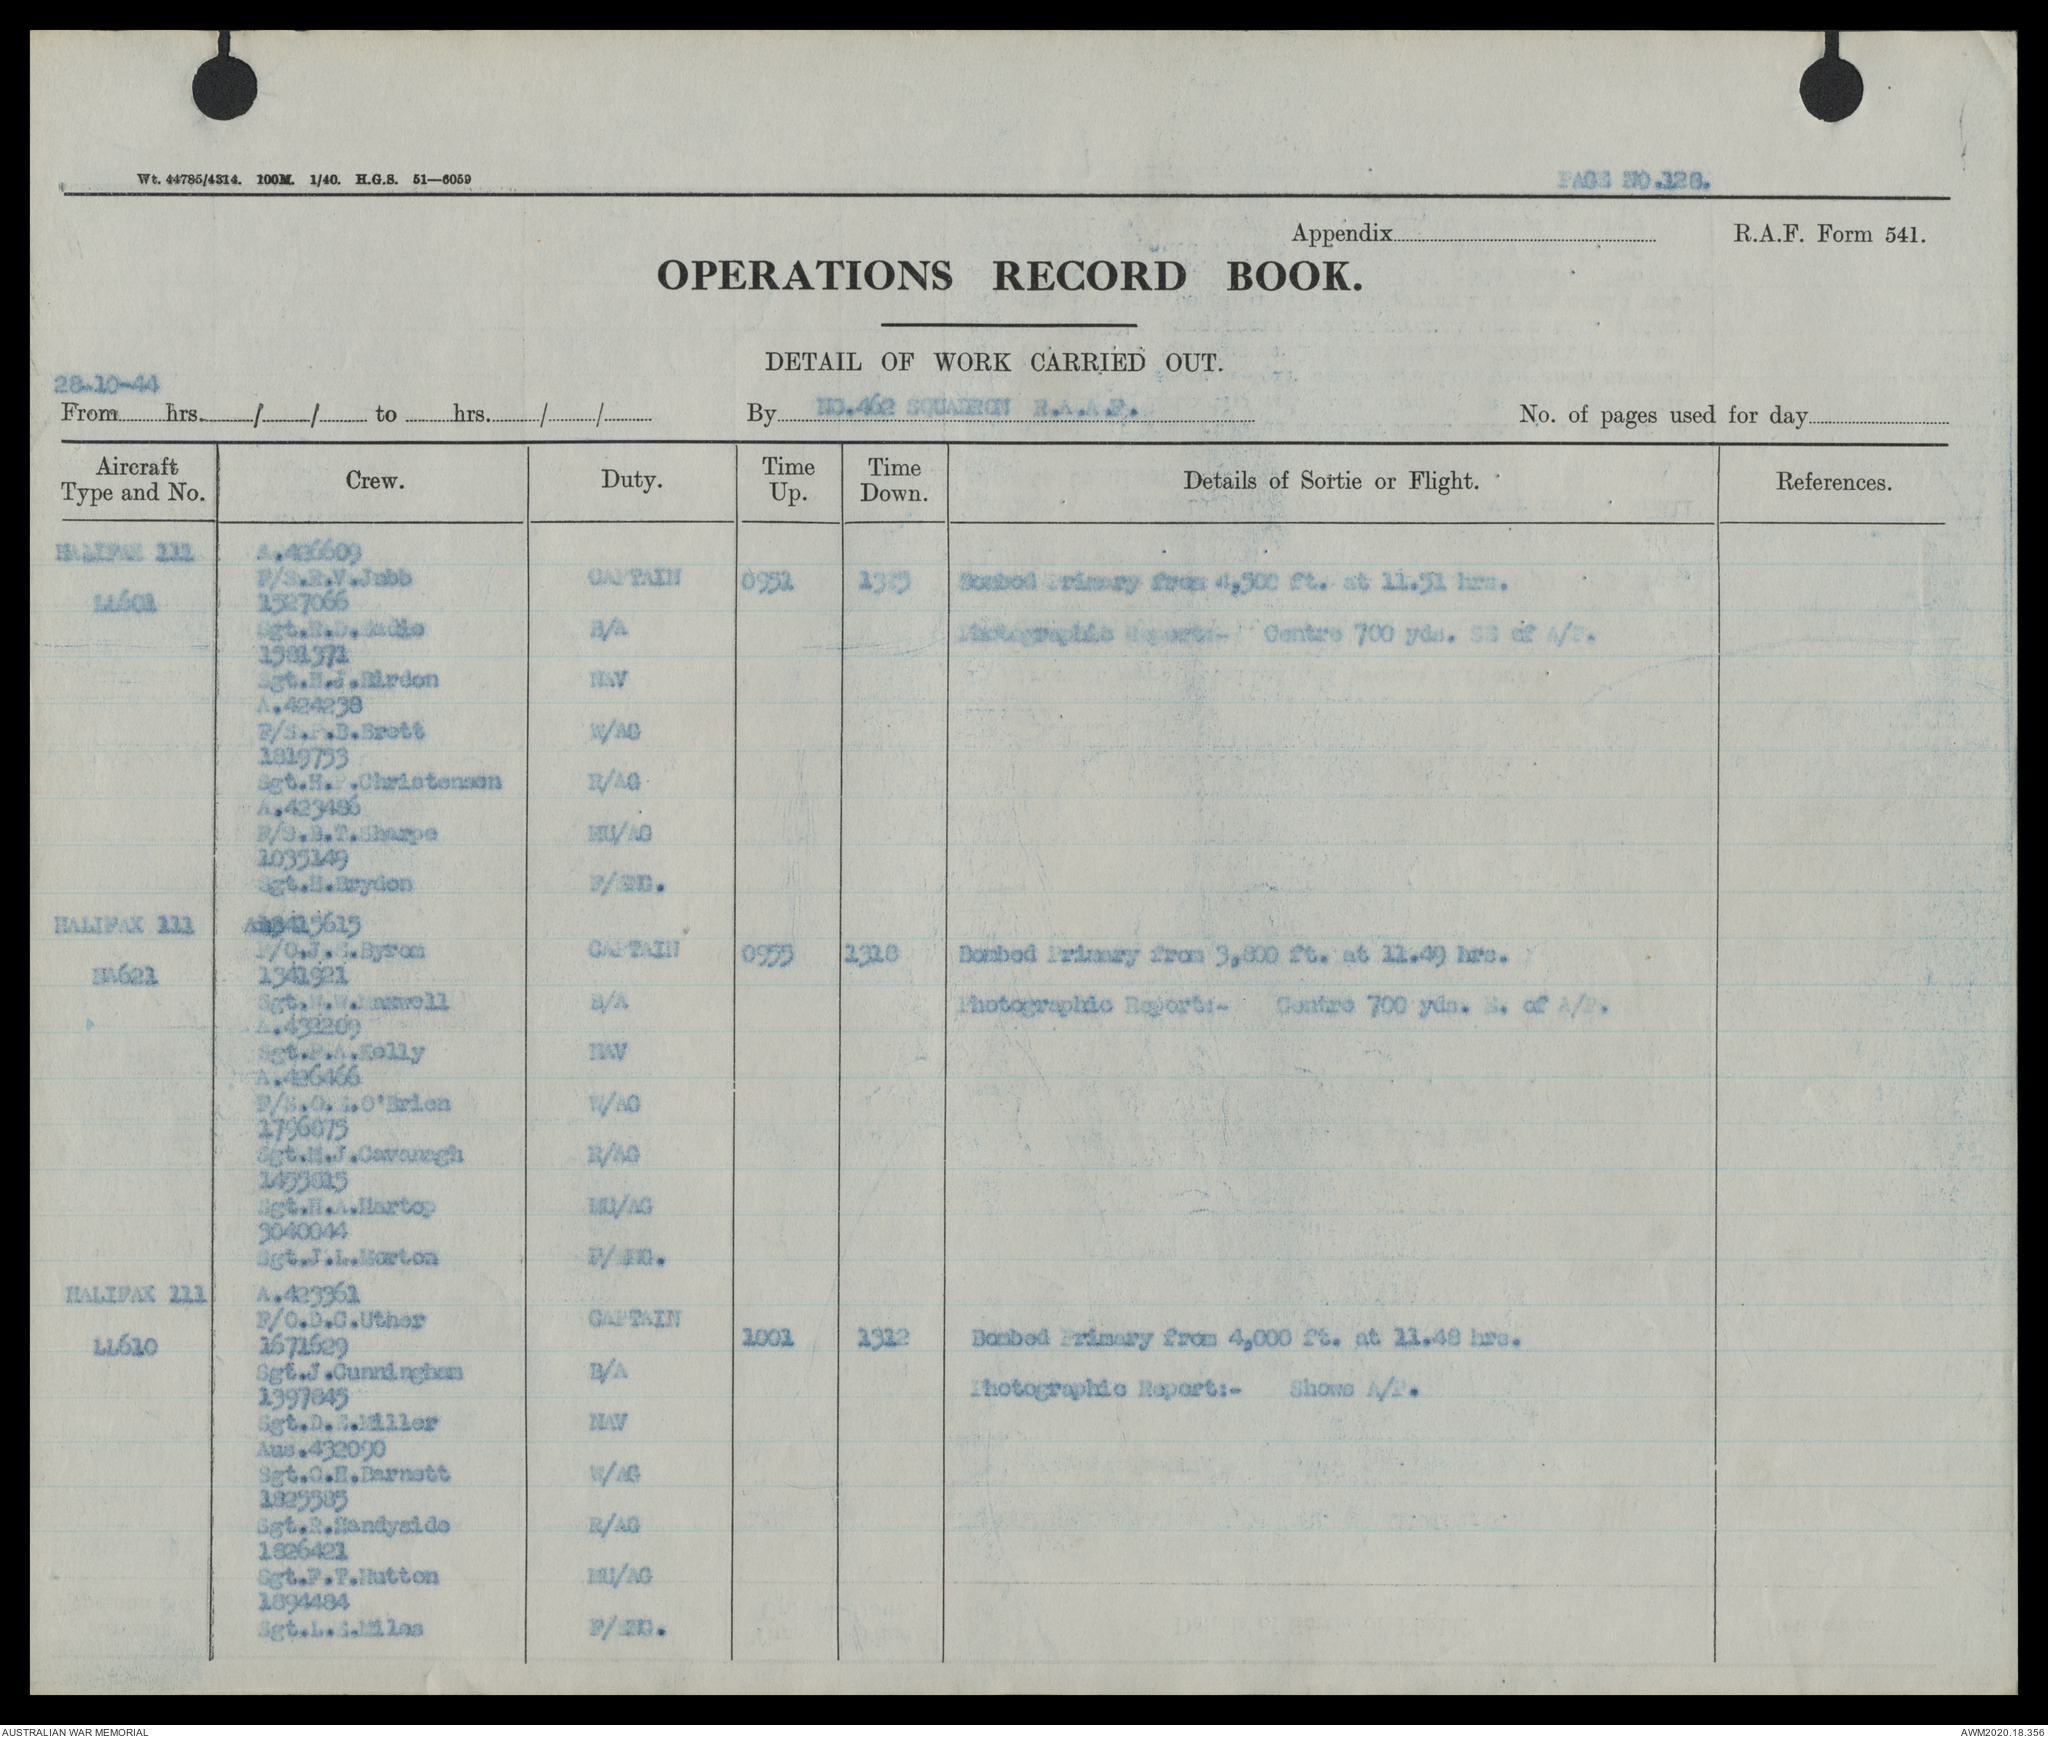 Wt. 44785/4314. 100M. 1/40. H.G.S. 51—6059
PAGE NO.128.
Appendix
R.A.F. Form 541.
OPERATIONS RECORD BOOK.
DETAIL OF WORK CARRIED OUT.
28-10-44
From hrs. / / to hrs. / / By NO.462 SQUADRON R.A.A.F. No. of pages used for day
Aircraft Type and No. Crew. Duty. Time Up. Time Down. Details of Sortie or Flight. References.
HALIFAX 111 A.426609
F/S.R.V.Jubb CAPTAIN 0951 1325 Bombed Primary from 4,500 ft. at 11.51 hrs.
LL601 1527066
Sgt.R.D. B/A Photographic Report:- Centre 700 yds. SE of A/P.
1581371
Sgt.H.J.Birdon NAV
A.424238
F/S.P.B.Brett W/AG
1819753
Sgt.H.P.Christensen R/AG
A.423486
F/S.B.T.Sharpe MU/AG
1035149
Sgt.H.Brydon F/ENG.
HALIFAX 111 415615
F/O.J.S.Byrom CAPTAIN 0955 1318 Bombed Primary from 3,800 ft. at 11.49 hrs.
NA621 1341921
Sgt.W.W.Maxwell B/A Photographic Report:- Centre 700 yds. E. of A/P.
A.432209
Sgt.P.A.Kelly NAV
A.426466
F/S.O.E.O'Brien W/AG
1796875
Sgt.M.J.Cavanagh R/AG
1455815
Sgt.H.A.Hartop MU/AG
3040044
Sgt.J.L.Morton F/ENG.
HALIFAX 111 A.423361
F/O.D.C.Uther CAPTAIN
LL610 1671629 1001 1312 Bombed Primary from 4,000 ft. at 11.48 hrs.
Sgt.J.Cunningham B/A
1397845 Photographic Report:- Shows A/P.
Sgt.D.E.Miller NAV
Aus.432090
Sgt.C.H.Barnett W/AG
1825585
Sgt.R.Handyside R/AG
1826421
Sgt.F.T.Hutton MU/AG
1894484
Sgt.L.S.Miles F/ENG.
AUSTRALIAN WAR MEMORIAL
AWM2020.18.356